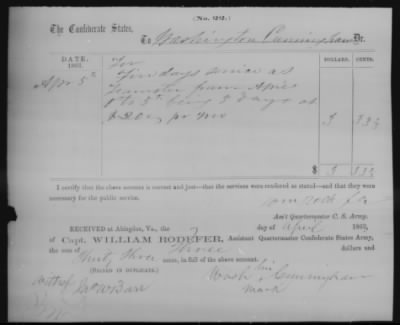 (No. 22.)
The Confederate States,
To Washington Cunningham Dr.
DATE, 1863. DOLLARS. CENTS.
Apr 5th For
five days service as
Teamster from April
1 to 5th being 5 days at
$20 pr mo 3 33⅓
$ 3 33⅓
I certify that the above account is correct and just—that the services were rendered as stated—and that they were
necessary for the public service.
Wm Rodefer
Ass't Quartermaster C. S. Army.
RECEIVED at Abingdon, Va., the day of April 1863,
of Capt. WILLIAM RODEFER, Assistant Quartermaster Confederate States Army,
the sum of Three dollars and
Thirty Three cents, in full of the above account.
(SIGNED IN DUPLICATE.) Wash his Cunningham
mark